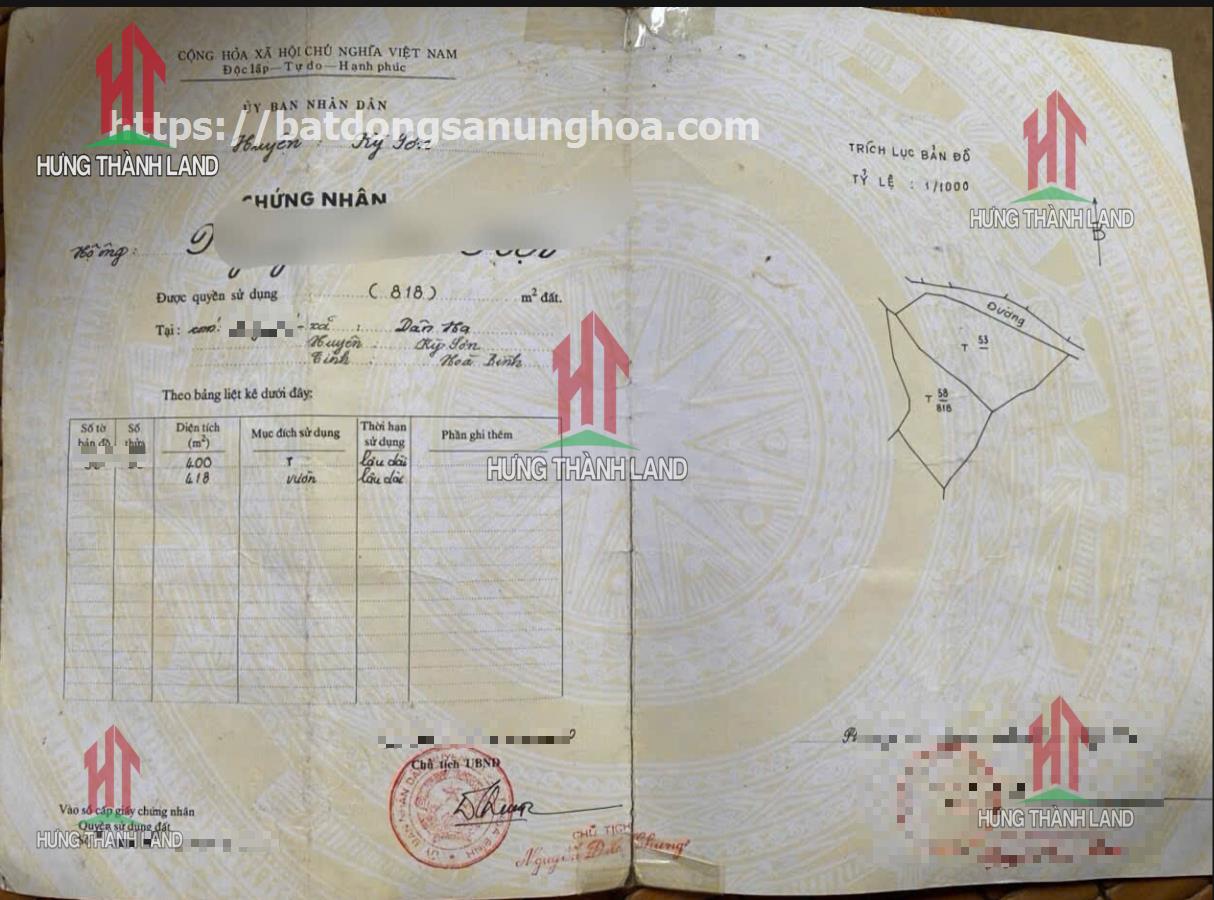 CỘNG HÒA XÃ HỘI CHỦ NGHĨA VIỆT NAM
Độc lập — Tự do — Hạnh phúc
ỦY BAN NHÂN DÂN
https://batdongsanunghoa.com
Huyện : Kỳ Sơn
HƯNG THÀNH LAND
CHỨNG NHẬN
Hộ ông :
Được quyền sử dụng (818) m² đất.
Tại : - xã : Dân Hạ
Huyện : Kỳ Sơn
Tỉnh : Hoà Bình
Theo bảng liệt kê dưới đây:
Số tờ bản đồ Số thửa Diện tích (m²) Mục đích sử dụng Thời hạn sử dụng Phần ghi thêm
400 T lâu dài
418 vườn lâu dài
HƯNG THÀNH LAND
Chủ tịch UBND
CHỦ TỊCH
Nguyễn Đức Chung
Vào sổ cấp giấy chứng nhận
Quyền sử dụng đất
HƯNG THÀNH LAND
TRÍCH LỤC BẢN ĐỒ
TỶ LỆ : 1/1000
HƯNG THÀNH LAND
B
Đường
T 53
T 58
818
HƯNG THÀNH LAND